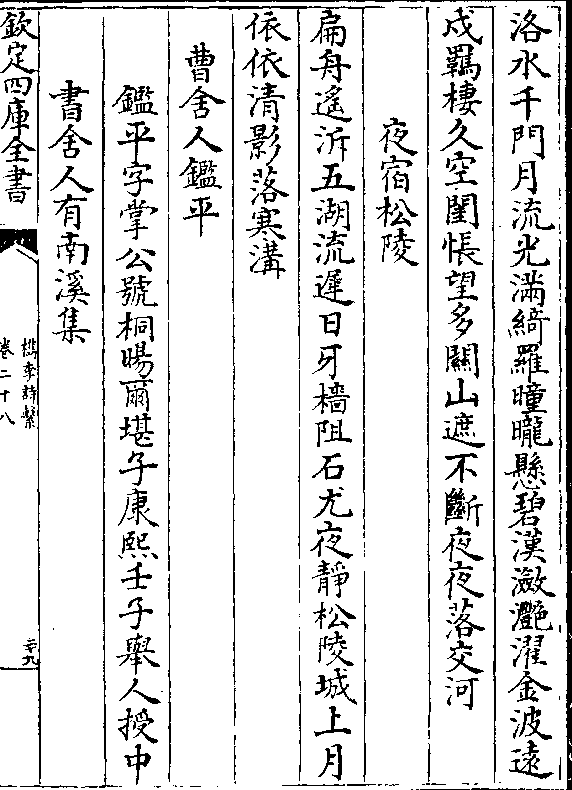 洛水千門月流光滿綺羅曈曨懸碧漢瀲灩濯金波遠
戍羈棲久空閨悵望多關山遮不斷夜夜落交河
夜宿松陵
扁舟遙泝五湖流遲日牙檣阻石尤夜靜松陵城上月
依依清影落寒溝
曹舍人鑑平
鑑平字掌公號桐暘爾堪子康熙壬子舉人授中
書舍人有南溪集
欽定四庫全書
檇李詩繫
卷二十八
二十九